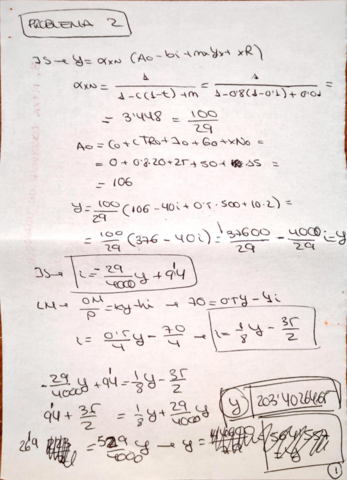 PROBLEMA 2
IS → Y = αxN (Ao - bi + mxYx + xR)
αxN = 1/(1-c(1-t)+m) = 1/(1-0'8(1-0'1)+0'01) =
= 3'448 = 100/29
Ao = Co + cTRo + Io + Go + XNo =
= 0 + 0'8·20 + 25 + 50 + 15 =
= 106
Y = 100/29 (106 - 40i + 0'5·500 + 10·2) =
= 100/29 (376 - 40i) = 37600/29 - 4000/29 i = y
IS → i = -29/4000 y + 9'4
LM → OM/P = ky - hi → 70 = 0'5y - 4i
i = 0'5/4 y - 70/4 → i = 1/8 y - 35/2
-29/4000 y + 9'4 = 1/8 y - 35/2
9'4 + 35/2 = 1/8 y + 29/4000 y
26'9 = 529/4000 y → y =
y 203'4026465
1